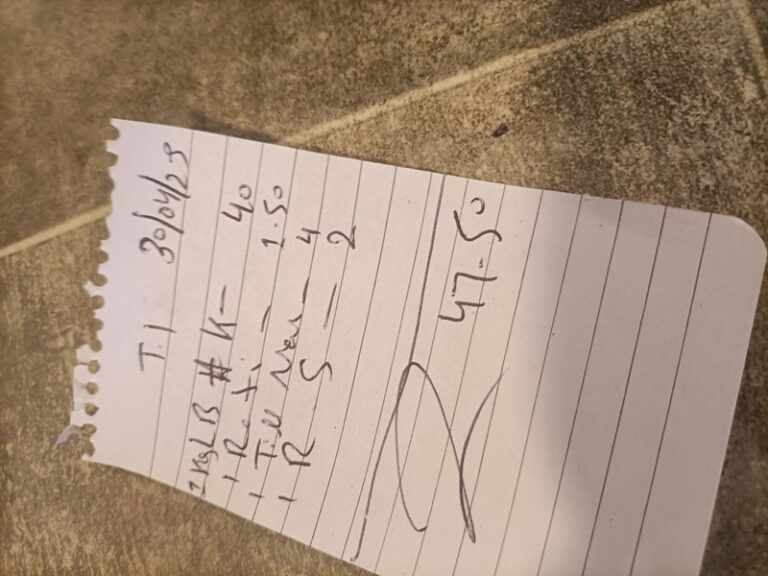 T.1 30/04/25
1 Kg L B # K - 40
1 Roti - 1.50
1 Till Nan - 4
1 R S - 2
47.50